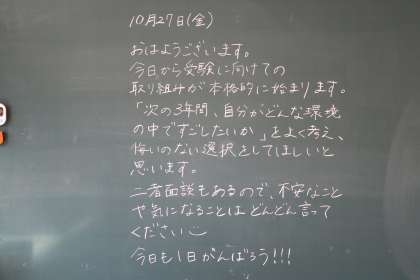 10月27日(金)
おはようございます。
今日から受験に向けての
取り組みが本格的に始まります。
「次の3年間、自分がどんな環境
の中ですごしたいか」をよく考え、
悔いのない選択をしてほしいと
思います。
二者面談もあるので、不安なこと
や気になることはどんどん言って
ください
今日も1日がんばろう!!!